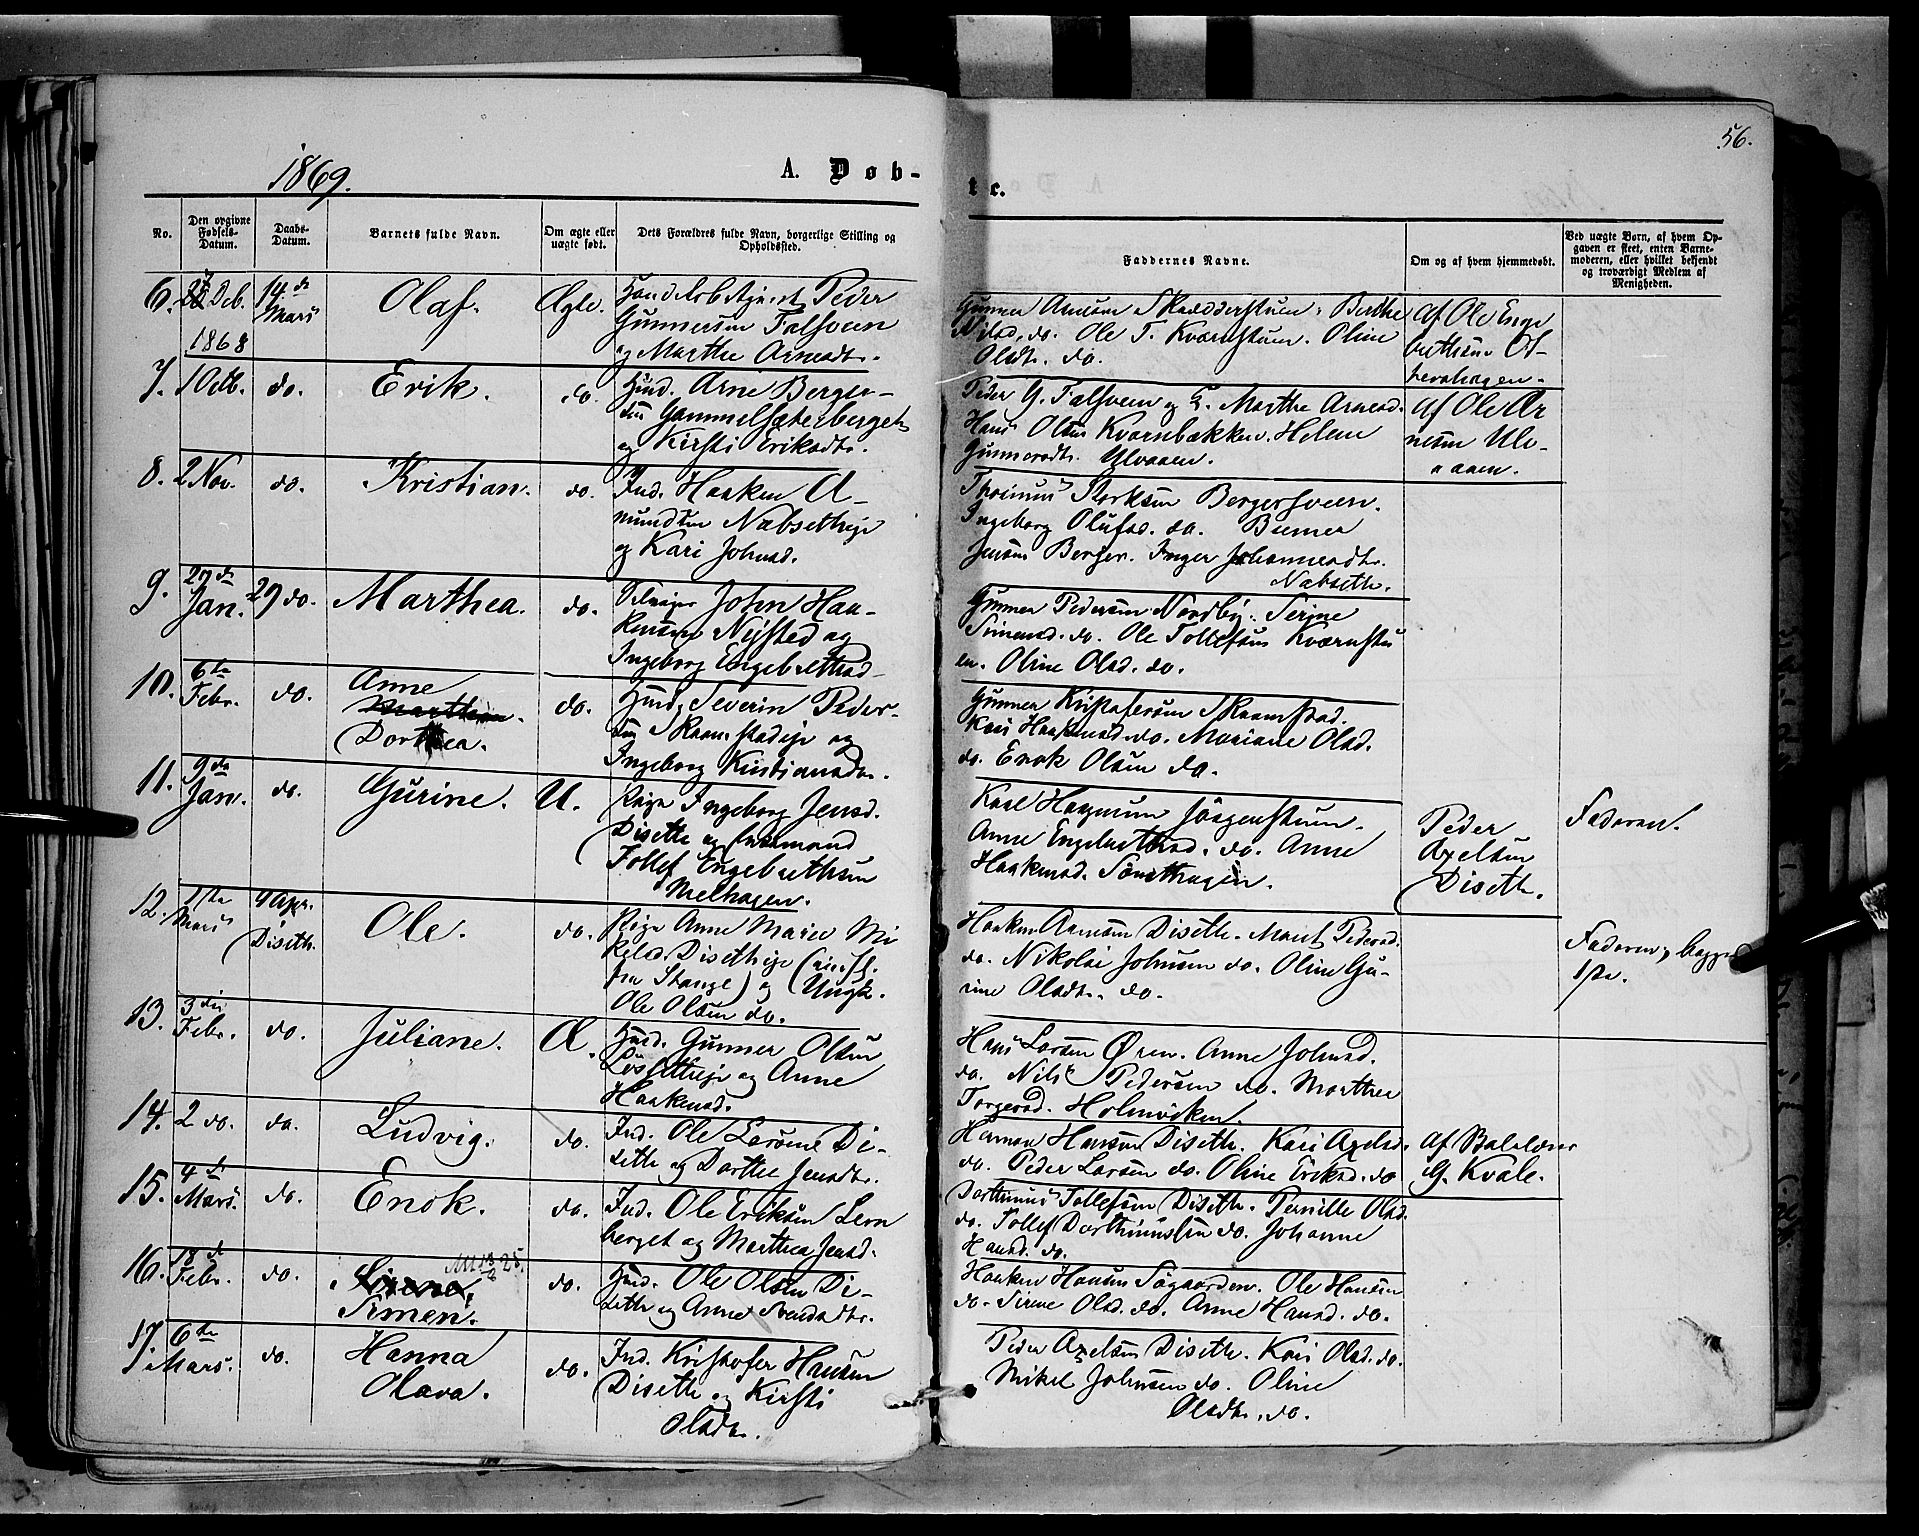 56.
1869.
A. Døb-
te.
No.
Den opgivne Fødsels-Datum.
Daabs-Datum.
Barnets fulde Navn.
Om ægte eller uægte født.
Dets Forældres fulde Navn, borgerlige Stilling og Opholdssted.
Faddernes Navne.
Om og af hvem hjemmedøbt.
Ved uægte Børn, af hvem Opgaven er skeet, enten Barnemoderen, eller hvilket bekjendt og troværdigt Medlem af Menigheden.
6. Deb. 1868
14de Mars
Olaf.
Ægte.
Peder
Gunnersen Falsveen
og Marthe Arnesdtr.
Gunner Arnesen Skrædderstuen. Berthe
do. Ole T. Kværnstuen. Oline
Olsdtr. do.
Af Ole Enge
brethsen
7. 1 Octb. do.
Erik.
do.
Husd. Arne Berger-
sen Gammelsæterberget
og Kirsti Eriksdtr.
Peder G. Falsveen og K. Marthe Arnesd.
Hans Olsen Kværnbækken. Helene
Gunnersdtr. Ulvaaen.
Af Ole Ar
nesen Ulv-
aaen.
8. 2 Nov. do.
Kristian.
do.
Ind. Haaken A-
mundsen Næbsetheje
og Kari Johnsd.
Bergersveen.
Ingeborg Olufsd. do.
Jensen Berger. Inger Johannesdtr.
Næbseth.
9. 27de Jan. 29 do.
Marthea.
do.
John Haa-
kensen Nysted og
Ingeborg Engebrethsd.
Gunner Pedersen Nordby. Serine
Simensd. do. Ole Tollefsen Kværnstu
en. Oline Olsd. do.
10. 6te Febr. do.
Anne
Dorthea.
do.
Husd. Severin Peder-
sen Skramstadeje og
Ingeborg Kristiansdr.
Gunner Kristofersen Skramstad.
Kari Haakensd. do. Mariane Olsd.
do. Enok Olsen do.
11. 9de Jan. do.
Gurine.
U.
Pige Ingeborg Jensd.
Diseth og
Tollef Engebrethsen
Melhagen.
Karl Jørgenstuen.
Anne Engebrethsd. do. Anne
Haakensd.
Peder
Axelsen
Diseth.
Faderen.
12. 1ste Mars
9 Apr. Diseth.
Ole.
do.
Pige Anne Marie Mi
kelsd. Disetheje (
fra Stange) og Ungk.
Ole Olsen do.
Haaken Arnesen Diseth. Marit Pedersd.
do. Nikolai Johnsen do. Oline Gu-
rine Olsdtr. do.
Faderen, begges
1ste.
13. 3die Febr. do.
Juliane.
Æ.
Husd. Gunner Olsen
Løssetheje og Anne
Haakensd.
Hans Larsen Øren. Anne Johnsd.
do. Nils Pedersen do. Marthe
Torgersd. Holmviken.
14. 2 do. do.
Ludvig.
do.
Ind. Ole Larsen Di-
seth og Dorthe Jensdtr.
Herman Hansen Diseth. Kari Axelsd.
do. Peder Larsen do. Oline Eriksd. do
Af
G. Kvale.
15. 4de Mars. do.
Enok.
do.
Ind. Ole Eriksen Lern
berget og Marthea Jensd.
Dorthinus Tollefsen Diseth. Pernille Olsd.
do. Tollef Dorthinussen do. Johanne
Hansd. do.
16. 18de Febr. do.
Simen.
do.
Husd. Ole Olsen Di-
seth og Anne
Haaken Hansen Søgaarden. Ole Hansen
do. Sirene Olsd. do. Anne Hansd. do.
17. 6te Mars. do.
Hanna
Olava.
do.
Ind. Kristofer Hansen
Diseth og Kirsti
Olsdr.
Peder Axelsen Diseth. Kari Olsd. do.
Mikel Johnsen do. Oline
Olsdtr. do.